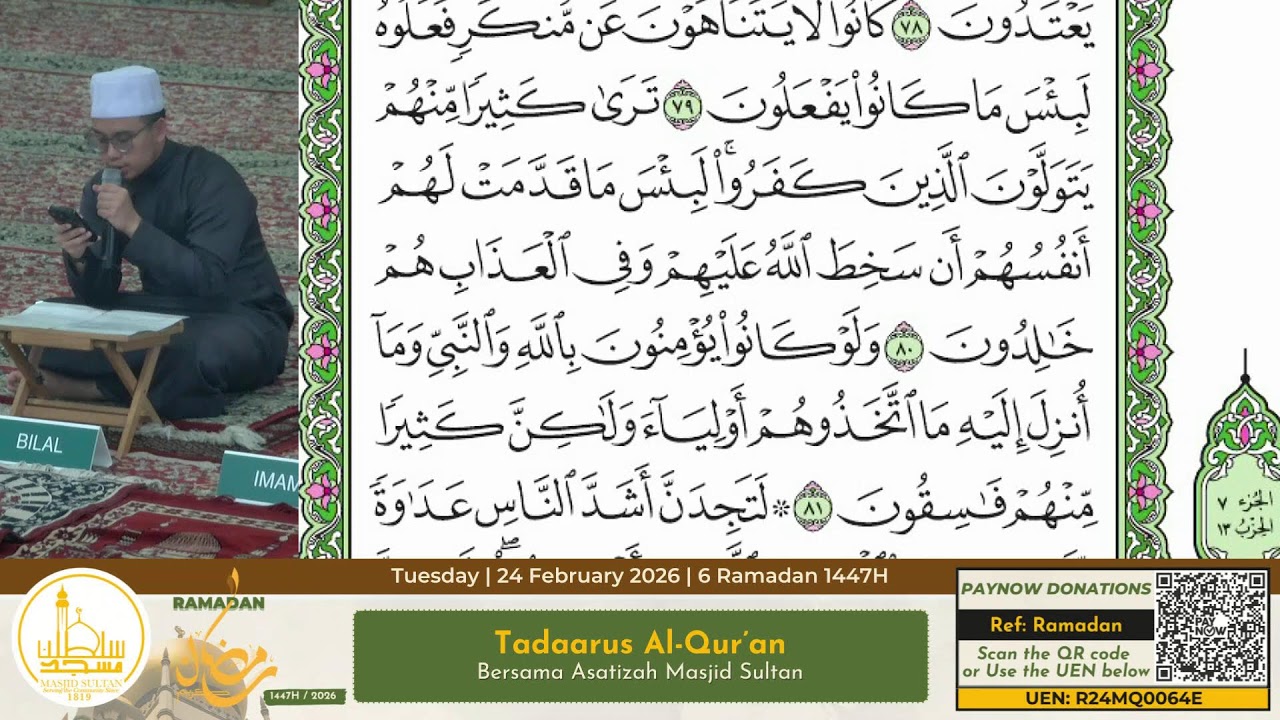 يَعْتَدُونَ ٧٨ كَانُوا۟ لَا يَتَنَاهَوْنَ عَن مُّنكَرٍ فَعَلُوهُ
لَبِئْسَ مَا كَانُوا۟ يَفْعَلُونَ ٧٩ تَرَىٰ كَثِيرًا مِّنْهُمْ
يَتَوَلَّوْنَ ٱلَّذِينَ كَفَرُوا۟ ۚ لَبِئْسَ مَا قَدَّمَتْ لَهُمْ
أَنفُسُهُمْ أَن سَخِطَ ٱللَّهُ عَلَيْهِمْ وَفِى ٱلْعَذَابِ هُمْ
خَـٰلِدُونَ ٨٠ وَلَوْ كَانُوا۟ يُؤْمِنُونَ بِٱللَّهِ وَٱلنَّبِىِّ وَمَآ
أُنزِلَ إِلَيْهِ مَا ٱتَّخَذُوهُمْ أَوْلِيَآءَ وَلَـٰكِنَّ كَثِيرًا
مِّنْهُمْ فَـٰسِقُونَ ٨١ ۞ لَتَجِدَنَّ أَشَدَّ ٱلنَّاسِ عَدَٰوَةً
الجُزء ٧
الحِزْبُ ١٣
BILAL
IMAM
Tuesday | 24 February 2026 | 6 Ramadan 1447H
سلطان
مسجد
MASJID SULTAN
Serving the Community Since
1819
RAMADAN
1447H / 2026
Tadaarus Al-Qur'an
Bersama Asatizah Masjid Sultan
PAYNOW DONATIONS
Ref: Ramadan
Scan the QR code
or Use the UEN below
PAY
NOW
UEN: R24MQ0064E